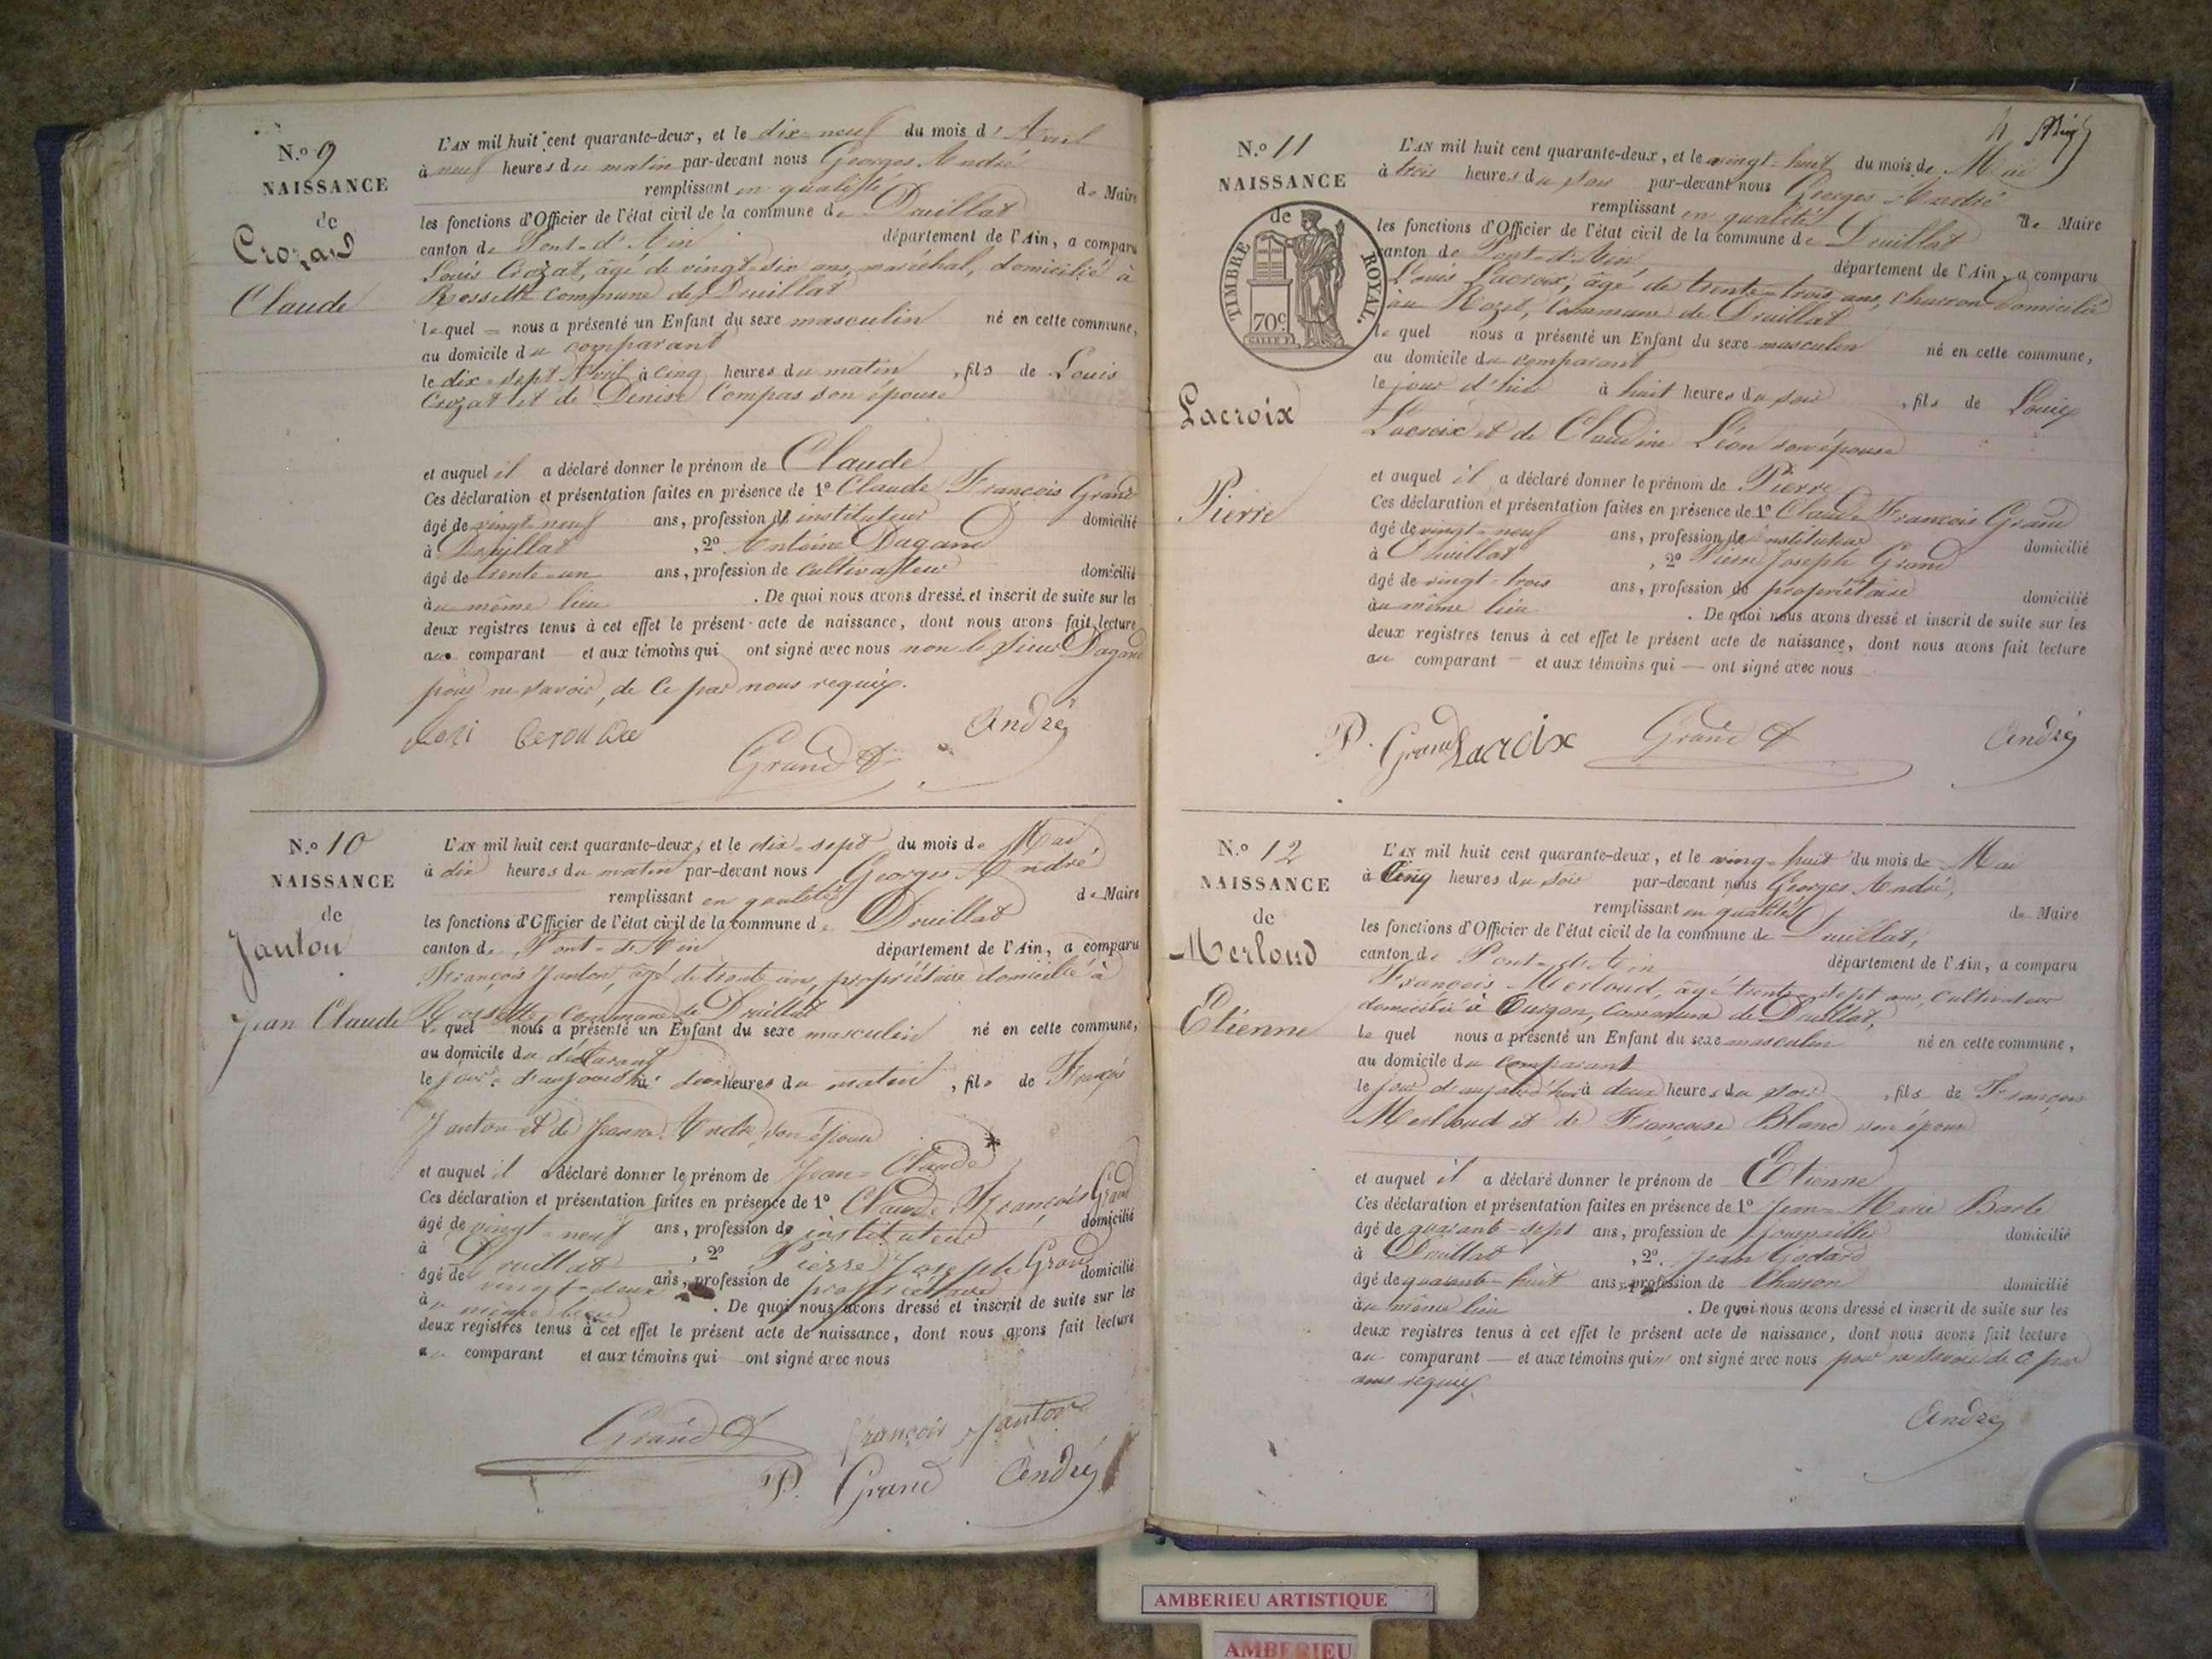 N.o 9
NAISSANCE
de
Crozat
Claude
L'AN mil huit cent quarante-deux, et le dix-neuf du mois d'Avril
à neuf heures du matin par-devant nous Georges André
remplissant en qualité de Maire
les fonctions d'Officier de l'état civil de la commune de Druillat
canton de Pont-d'Ain département de l'Ain, a comparu
Louis Crozat, âgé de vingt-six ans, maréchal, domicilié à
Rossette commune de Druillat
lequel nous a présenté un Enfant du sexe masculin né en cette commune,
au domicile du comparant
le dix-sept Avril à cinq heures du matin, fils de Louis
Crozat et de Denise Compas son épouse
et auquel il a déclaré donner le prénom de Claude
Ces déclaration et présentation faites en présence de 1º Claude François Grand
âgé de vingt neuf ans, profession d'instituteur domicilié
à Druillat, 2º Antoine Dagand
âgé de trente-un ans, profession de cultivateur domicilié
au même lieu. De quoi nous avons dressé et inscrit de suite sur les
deux registres tenus à cet effet le présent acte de naissance, dont nous avons fait lecture
au comparant et aux témoins qui ont signé avec nous non le sieur Dagand
pour ne savoir, de ce par nous requis.
Grand André
N.o 10
NAISSANCE
de
Janton
Jean Claude
L'AN mil huit cent quarante-deux, et le dix-sept du mois de Mai
à dix heures du matin par-devant nous Georges André
remplissant en qualité de Maire
les fonctions d'Officier de l'état civil de la commune de Druillat
canton de Pont-d'Ain département de l'Ain, a comparu
François Janton, âgé de trente ans, propriétaire domicilié à
Rossette, commune de Druillat
lequel nous a présenté un Enfant du sexe masculin né en cette commune,
au domicile du déclarant
le jour d'aujourd'hui heures du matin, fils de François
Janton et de Jeanne André son épouse
et auquel il a déclaré donner le prénom de Jean-Claude
Ces déclaration et présentation faites en présence de 1º Claude François Grand
âgé de vingt-neuf ans, profession d'instituteur domicilié
à Druillat, 2º Pierre Joseph Grand
âgé de vingt-deux ans, profession de propriétaire domicilié
au même lieu. De quoi nous avons dressé et inscrit de suite sur les
deux registres tenus à cet effet le présent acte de naissance, dont nous avons fait lecture
au comparant et aux témoins qui ont signé avec nous
Grand François Janton
P. Grand André
N.o 11
NAISSANCE
de
TIMBRE ROYAL.
70c.
Lacroix
Pierre
L'AN mil huit cent quarante-deux, et le vingt-huit du mois de Mai
à trois heures du soir par-devant nous Georges André
remplissant en qualité de Maire
les fonctions d'Officier de l'état civil de la commune de Druillat
canton de Pont-d'Ain département de l'Ain, a comparu
Louis Lacroix, âgé de trente-trois ans, charron domicilié
au Rozet, commune de Druillat
lequel nous a présenté un Enfant du sexe masculin né en cette commune,
au domicile du comparant
le jour d'hier à huit heures du soir, fils de Louis
Lacroix et de Claudine Léon son épouse
et auquel il a déclaré donner le prénom de Pierre
Ces déclaration et présentation faites en présence de 1º Claude François Grand
âgé de vingt-neuf ans, profession de instituteur domicilié
à Druillat, 2º Pierre Joseph Grand
âgé de vingt-trois ans, profession de propriétaire domicilié
au même lieu. De quoi nous avons dressé et inscrit de suite sur les
deux registres tenus à cet effet le présent acte de naissance, dont nous avons fait lecture
au comparant et aux témoins qui ont signé avec nous
P. Grand Lacroix Grand André
N.o 12
NAISSANCE
de
Merloud
Etienne
L'AN mil huit cent quarante-deux, et le ving-huit du mois de Mai
à Cinq heures du soir par-devant nous Georges André,
remplissant en qualité de Maire
les fonctions d'Officier de l'état civil de la commune de Druillat,
canton de Pont-d'Ain département de l'Ain, a comparu
François Merloud, âgé trente-sept ans, cultivateur
domicilié à Turgon, commune de Druillat,
lequel nous a présenté un Enfant du sexe masculin né en cette commune,
au domicile du comparant
le jour d'aujourd'hui à deux heures du soir, fils de François
Merloud et de Françoise Blanc son épouse
et auquel il a déclaré donner le prénom de Etienne
Ces déclaration et présentation faites en présence de 1º Jean-Marie
âgé de quarante-sept ans, profession de domicilié
à Druillat, 2º Jean Godard
âgé de quarante-huit ans, profession de charron domicilié
au même lieu. De quoi nous avons dressé et inscrit de suite sur les
deux registres tenus à cet effet le présent acte de naissance, dont nous avons fait lecture
au comparant et aux témoins qui n'ont signé avec nous pour ne savoir de ce par
nous requis
André
AMBERIEU ARTISTIQUE
AMBERIEU